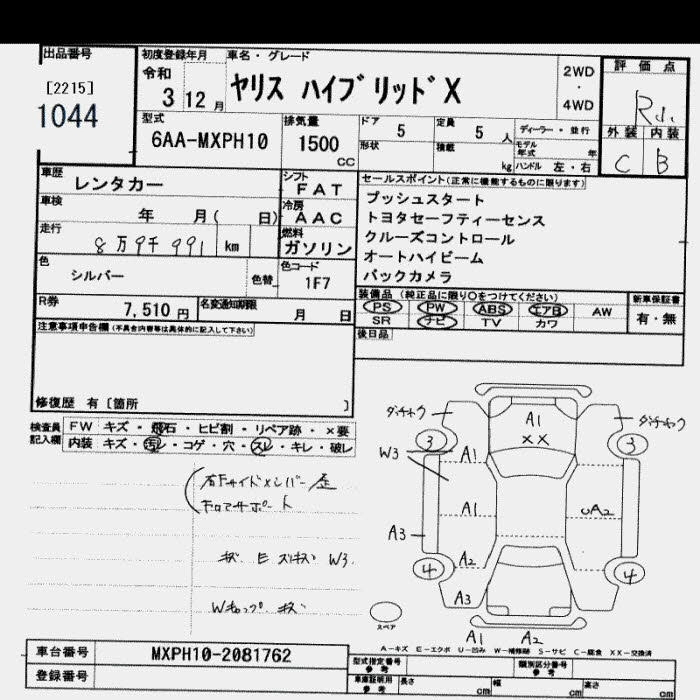 出品番号
[2215]
1044
初度登録年月
令和
3 12 月
車名・グレード
ヤリス ハイブリッド X
2WD
・
4WD
評価点
R
外装 内装
C B
型式
6AA-MXPH10
排気量
1500
CC
ドア
5
形状
定員
5 人
積載
kg
ディーラー・並行
モデル年式 年
ハンドル 左・右
車歴
レンタカー
車検
年 月( 日)
走行
8万9千991 km
色
シルバー
色替
R券
7,510 円
名変通知期限
月 日
シフト
FAT
冷房
AAC
燃料
ガソリン
色コード
1F7
セールスポイント(正常に機能するものに限ります)
プッシュスタート
トヨタセーフティーセンス
クルーズコントロール
オートハイビーム
バックカメラ
装備品 (純正品に限り○をつけてください)
PS PW ABS エアB AW
SR ナビ TV カワ
新車保証書
有・無
後日品
注意事項申告欄(不具合内容等は具体的に記入して下さい)
修復歴 有〔箇所 〕
検査員記入欄
FW キズ・飛石・ヒビ割・リペア跡・×要
内装 キズ・汚レ・コゲ・穴・スレ・キレ・破レ
右Fサイドメンバー歪
キズ E スリキズ W3
ダッチャク
A1
XX
ダッチャク
3
3
W3
A1
A1
UA2
A3
A2
4
4
A3
スペア
A1 A2
A-キズ E-エクボ U-凹み W-補修跡 S-サビ C-腐食 XX-交換済
車台番号
MXPH10-2081762
登録番号
型式指定番号
参考
類別区分番号
参考
車庫証明用
参考
長さ
cm
幅
cm
高さ
cm